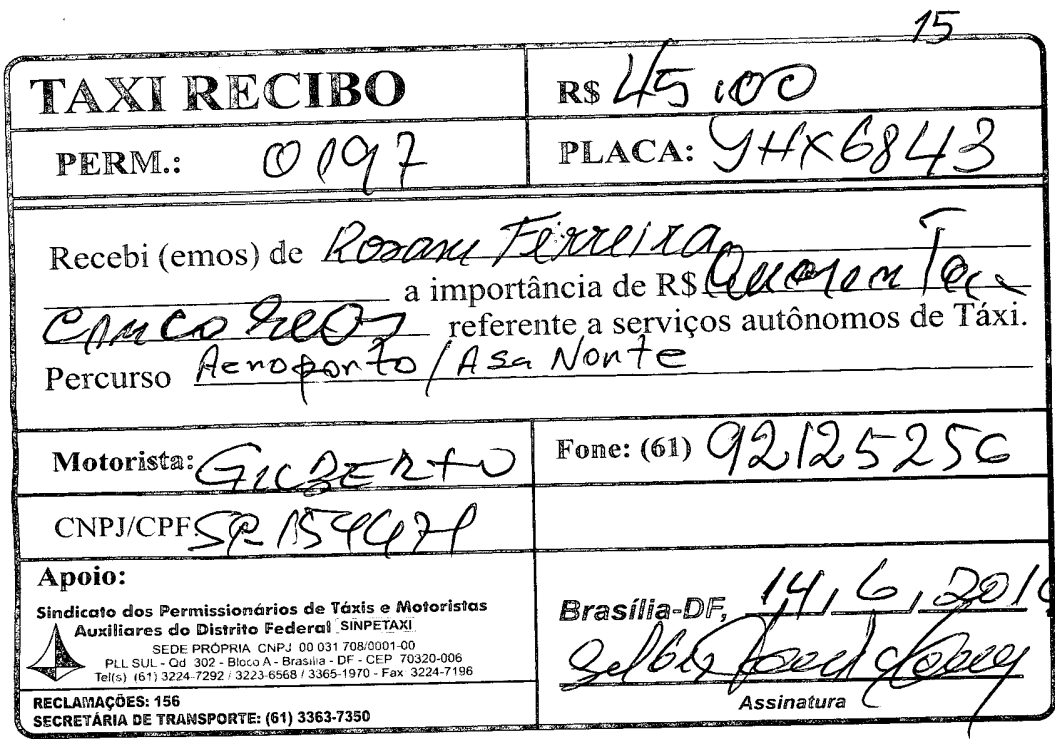 15
TAXI RECIBO
R$ 45,00
PERM.: 0197
PLACA: JHX6843
Recebi (emos) de Rosane Ferreira
a importância de R$ Quarenta e
cinco reos referente a serviços autônomos de Táxi.
Percurso Aeroporto / Asa Norte
Motorista: GILBERTO
Fone: (61) 92125256
CNPJ/CPF:
Apoio:
Sindicato dos Permissionários de Táxis e Motoristas
Auxiliares do Distrito Federal SINPETAXI
SEDE PRÓPRIA CNPJ 00 031 708/0001-00
PLL SUL - Qd 302 - Bloco A - Brasília - DF - CEP 70320-006
Tel(s) (61) 3224-7292 / 3223-6568 / 3365-1970 - Fax 3224-7196
RECLAMAÇÕES: 156
SECRETÁRIA DE TRANSPORTE: (61) 3363-7350
Brasília-DF, 14, 6, 201
Assinatura